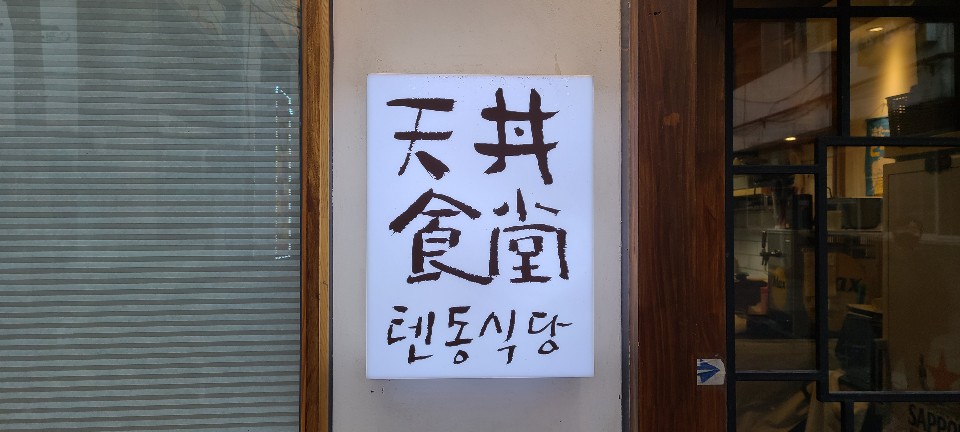 天丼
食堂
텐동식당
SAPPO